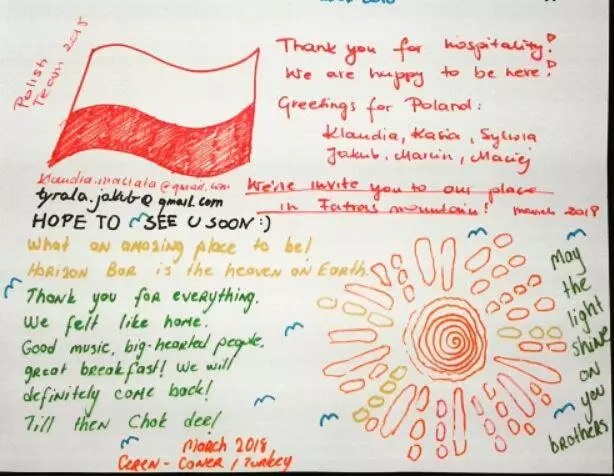 Polish
Team 2018
Thank you for hospitality!
We are happy to be here!
Greetings for Poland:
Klaudia, Kasia, Sylwia
Jakub, Marcin, Maciej
tyrala.jakub@gmail.com
We're invite you to our place
in Tatras mountain! march 2018
HOPE TO SEE U SOON :)
What an amazing place to be!
Horizon Bar is the heaven on Earth.
Thank you for everything.
We felt like home.
Good music, big-hearted people,
great breakfast! We will
definitely come back!
Till then Chok dee!
March 2018
CEREN - CANER / TURKEY
May
the
light
shine
on
you
brothers